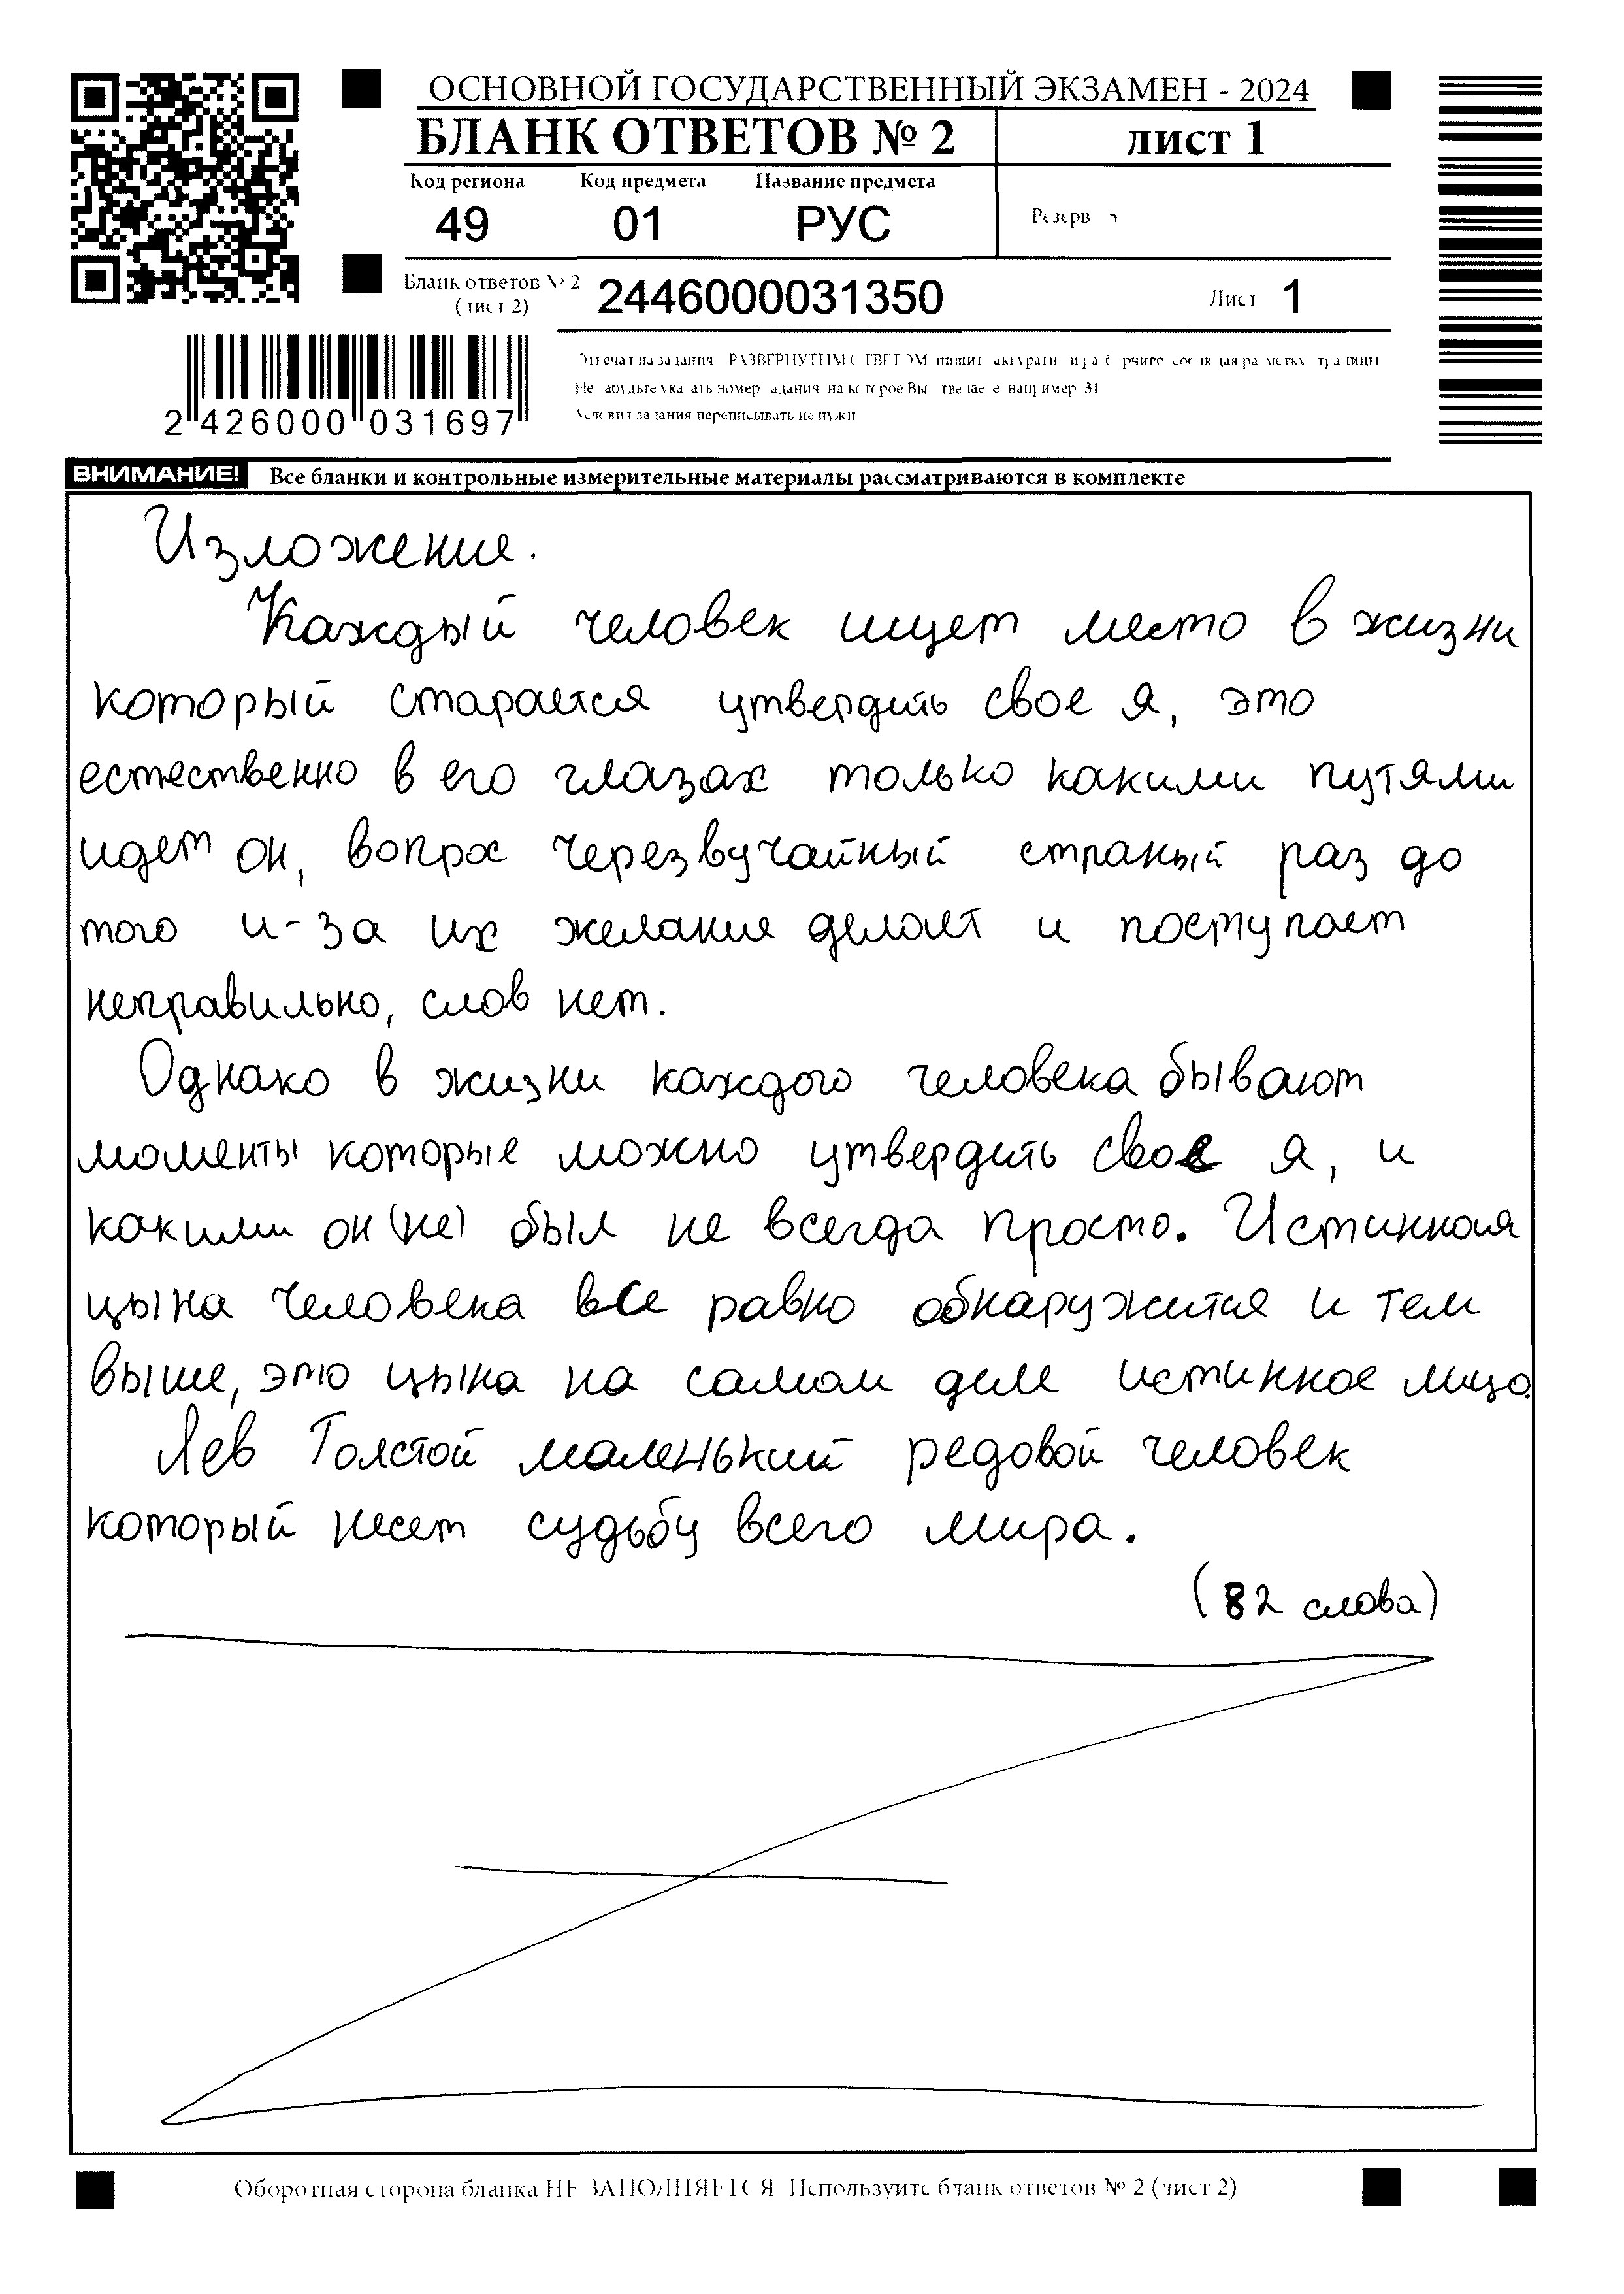 ОСНОВНОЙ ГОСУДАРСТВЕННЫЙ ЭКЗАМЕН - 2024
БЛАНК ОТВЕТОВ № 2 лист 1
Код региона Код предмета Название предмета
49 01 РУС
Резерв
Бланк ответов № 2
(лист 2)
2446000031350
Лист 1
2 426000 031697
переписывать не
ВНИМАНИЕ! Все бланки и контрольные измерительные материалы рассматриваются в комплекте
Изложение.
Каждый человек ищет место в жизни
который старается утвердить свое я, это
естественно в его глазах только какими путями
идет он, вопрос черезвучайный страный раз до
того и-за их желание делает и поступает
неправильно, слов нет.
Однако в жизни каждого человека бывают
моменты которые можно утвердить свое я, и
какими он (не) был не всегда просто. Истинная
цына человека все равно обнаружится и тем
выше, это цына на самом деле истинное лицо.
Лев Толстой маленький редовой человек
который несет судьбу всего мира.
(82 слова)
Оборотная сторона бланка НЕ ЗАПОЛНЯЕТСЯ. Используйте бланк ответов № 2 (лист 2)